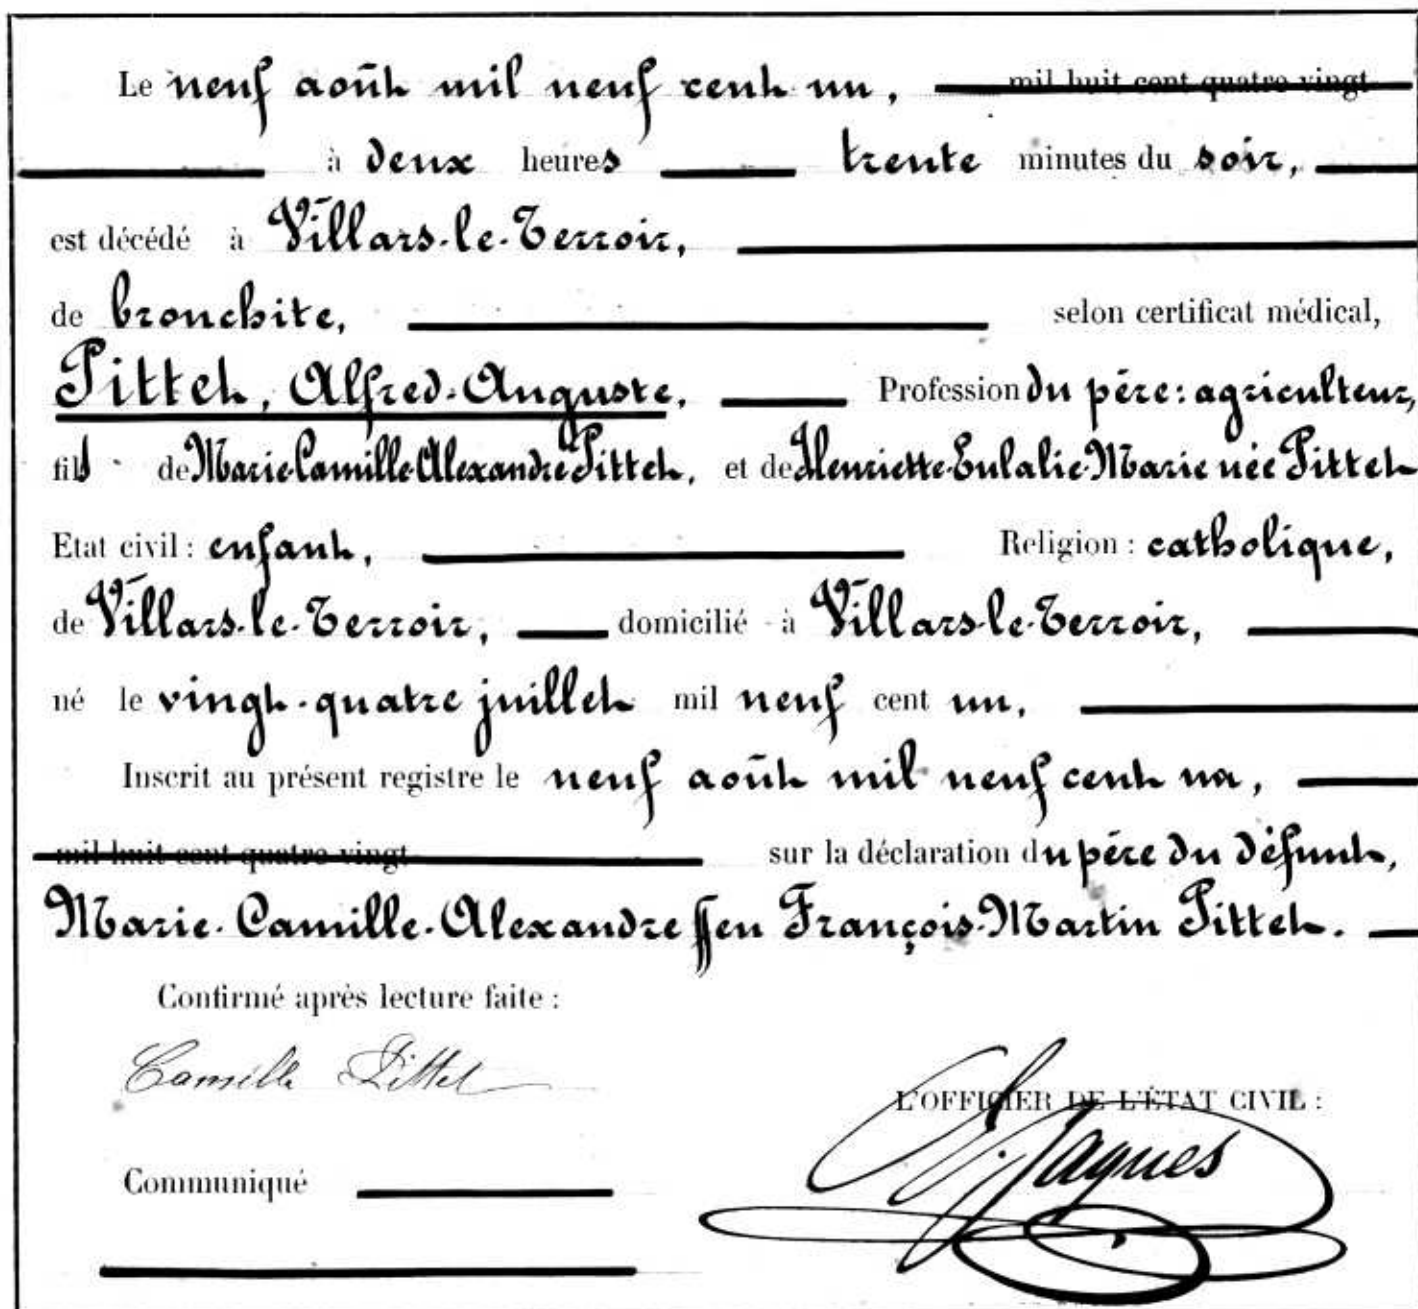 Le neuf août mil neuf cent un, mil huit cent quatre-vingt
à deux heures trente minutes du soir,
est décédé à Villars-le-Terroir,
de bronchite, selon certificat médical,
Pittet, Alfred-Auguste, Profession du père: agriculteur,
fils de Marie-Camille-Alexandre Pittet, et de Henriette-Eulalie-Marie née Pittet
Etat civil : enfant, Religion : catholique,
de Villars-le-Terroir, domicilié à Villars-le-Terroir,
né le vingt-quatre juillet mil neuf cent un,
Inscrit au présent registre le neuf août mil neuf cent un,
mil huit cent quatre-vingt sur la déclaration du père du défunt,
Marie-Camille-Alexandre ffeu François-Martin Pittet.
Confirmé après lecture faite :
Camille Pittet
L'OFFICIER DE L'ÉTAT CIVIL :
Jaques
Communiqué